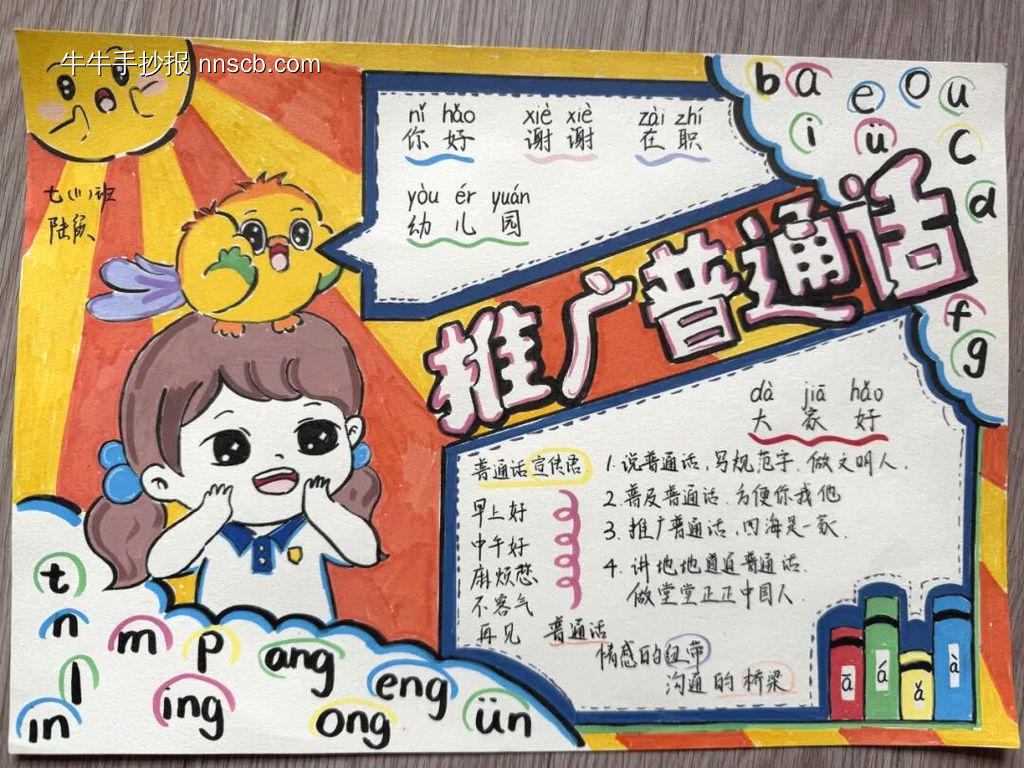 牛牛手抄报 nnscb.com
七(1)班
nǐ hǎo xiè xiè zài zhí
你好 谢谢 在职
yòu ér yuán
幼儿园
b a e o u
i ü c
d
f
g
推广普通话
dà jiā hǎo
大家好
普通话宣传语
早上好
中午好
麻烦您
不客气
再见
1.说普通话,写规范字.做文明人.
2.普及普通话.方便你我他
3.推广普通话,四海是一家.
4.讲地地道道普通话.
做堂堂正正中国人.
普通话
情感的纽带
沟通的桥梁
t
n m p ang
l ing eng
in ong ün
ā á ǎ à